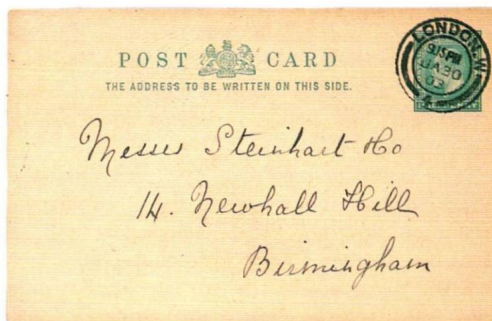 POST CARD
THE ADDRESS TO BE WRITTEN ON THIS SIDE.
LONDON. W.
9.15 PM
JA 30
03
Messrs Steinhart & Co
14. Newhall Hill
Birmingham